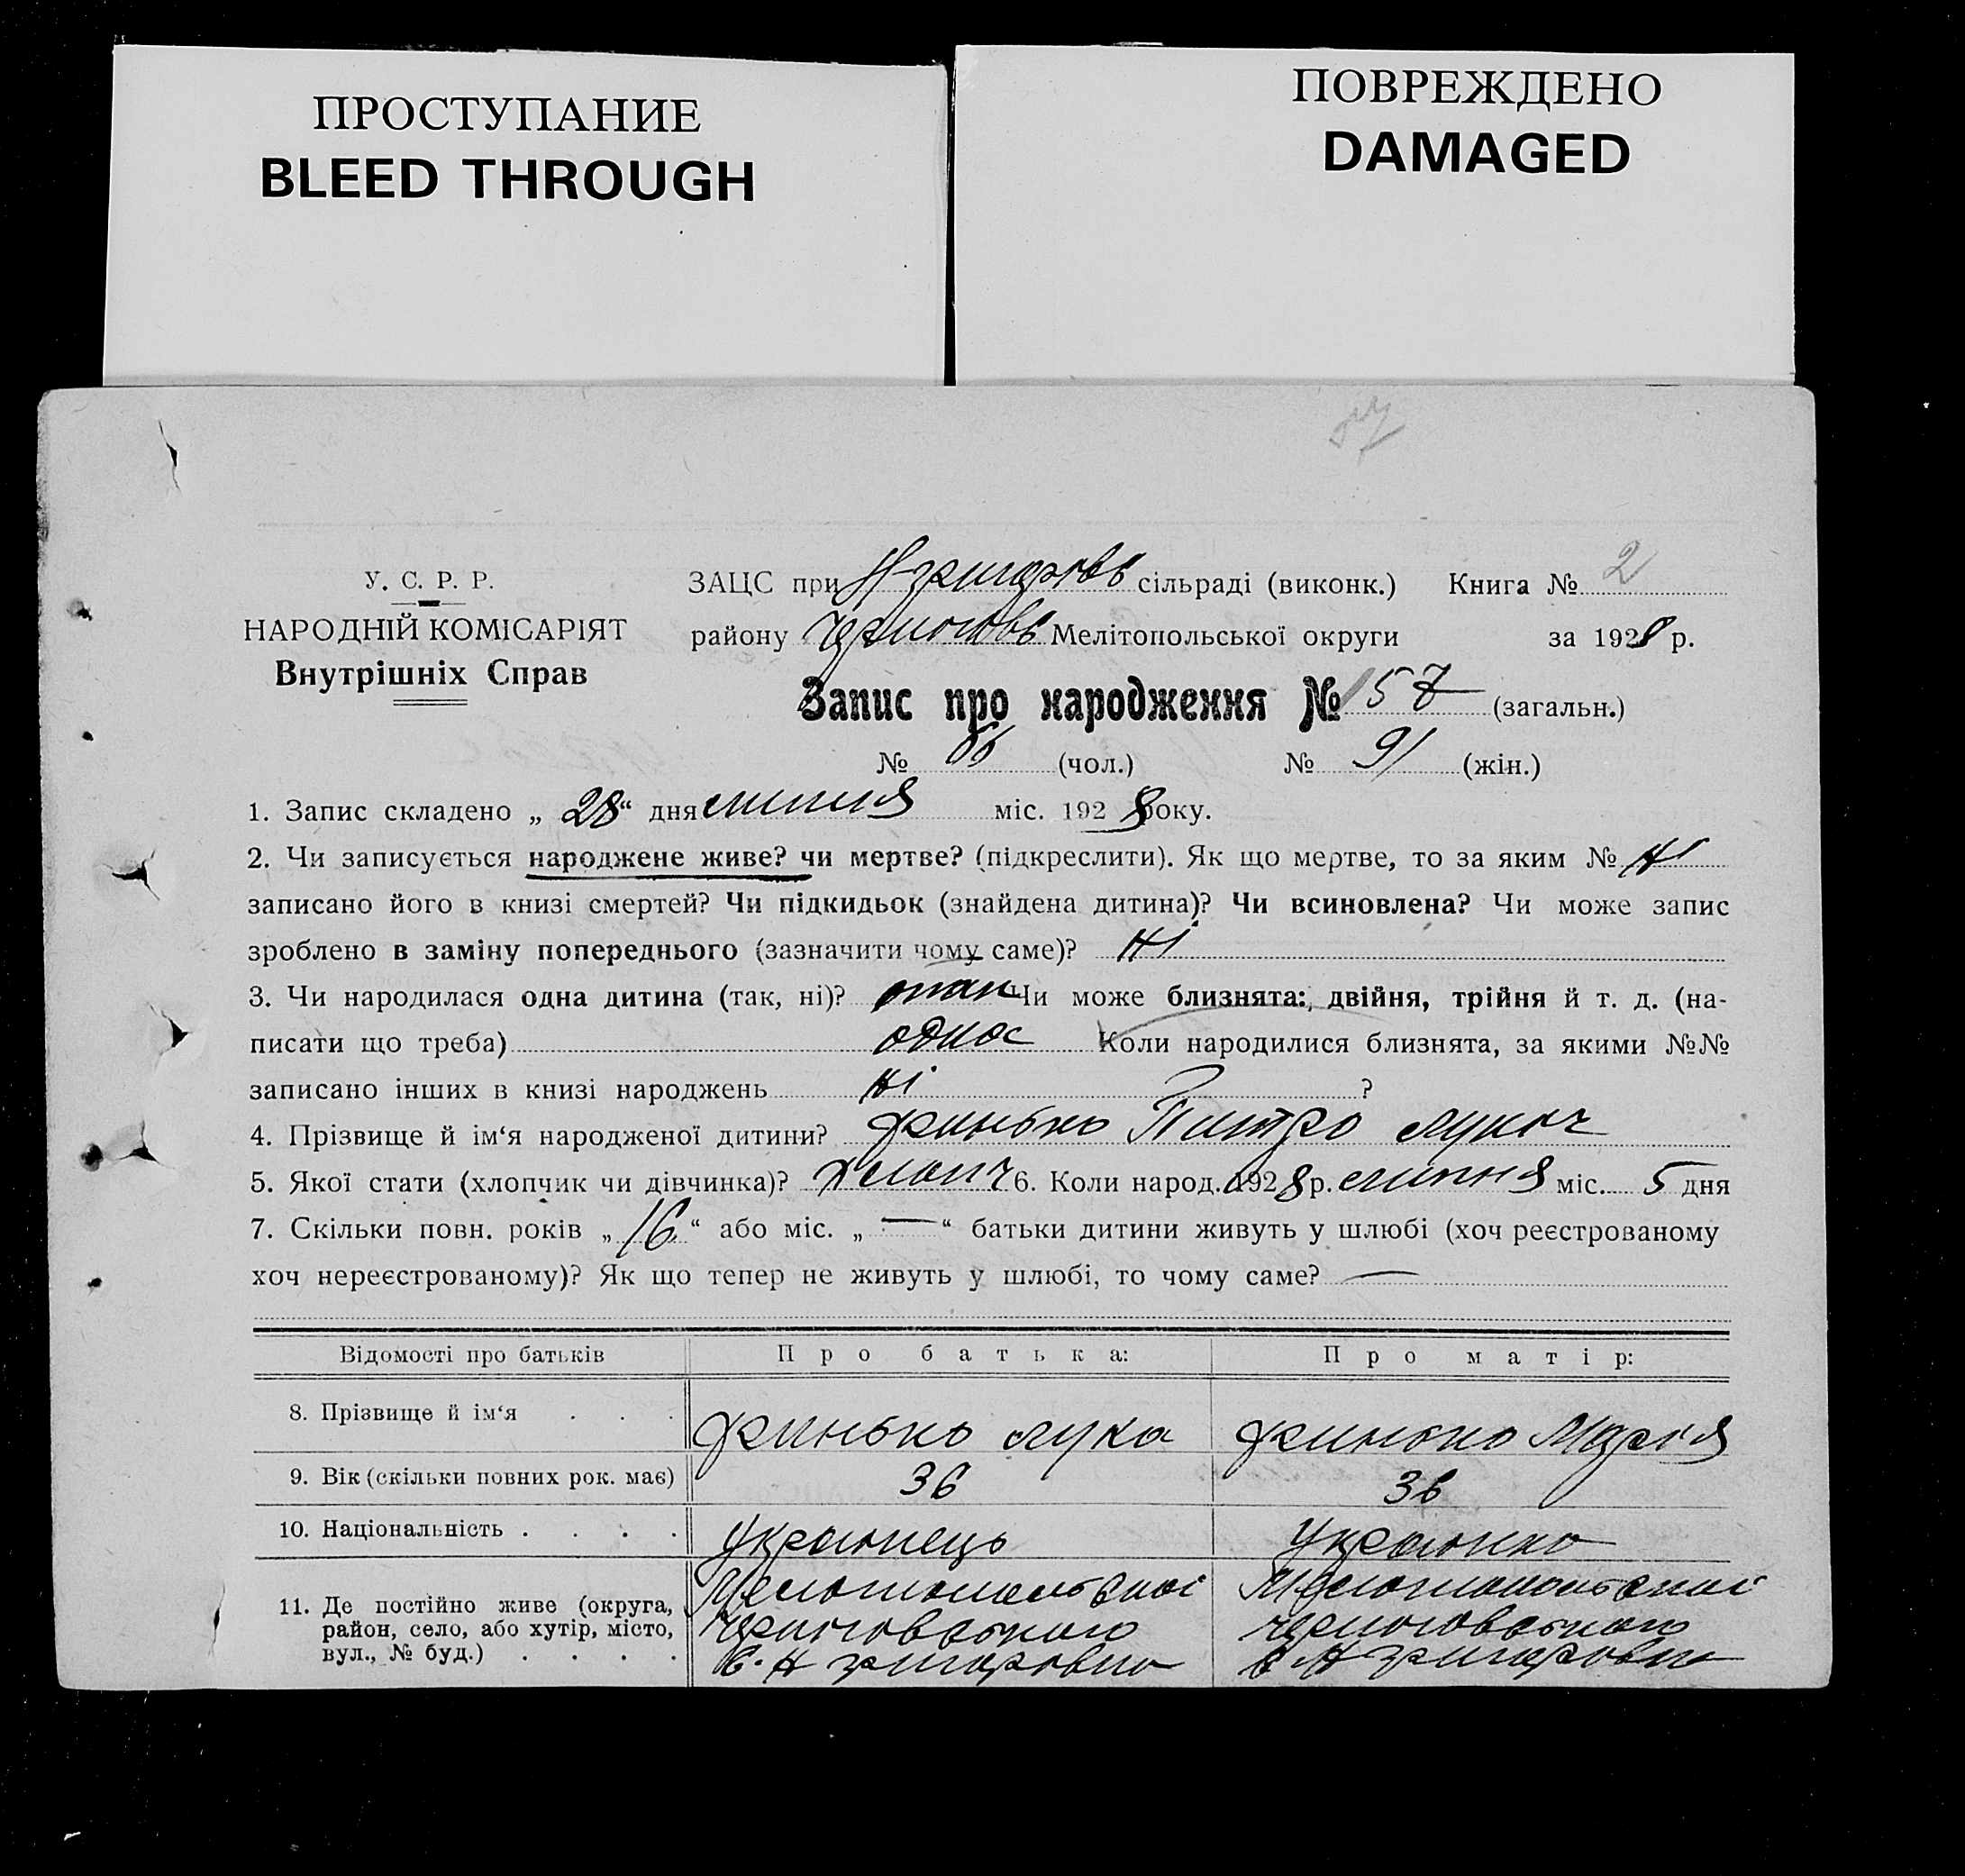 ПРОСТУПАНИЕ
BLEED THROUGH
ПОВРЕЖДЕНО
DAMAGED
У. С. Р. Р.
НАРОДНІЙ КОМІСАРІЯТ
Внутрішніх Справ
ЗАЦС при сільраді (виконк.) Книга № 2
району Мелітопольської округи за 1928 р.
Запис про народження № 157 (загальн.)
№ 66 (чол.) № 91 (жін.)
1. Запис складено „ 28 “ дня липня міс. 1928 року.
2. Чи записується народжене живе? чи мертве? (підкреслити). Як що мертве, то за яким № ні
записано його в книзі смертей? Чи підкидьок (знайдена дитина)? Чи всиновлена? Чи може запис
зроблено в заміну попереднього (зазначити чому саме)? ні
3. Чи народилася одна дитина (так, ні)? так Чи може близнята: двійня, трійня й т. д. (на-
писати що треба) одна Коли народилися близнята, за якими №№
записано інших в книзі народжень ні ?
4. Прізвище й ім‘я народженої дитини? Гринько Питро Лукич
5. Якої стати (хлопчик чи дівчинка)? Хлопч 6. Коли народ. 1928 р. липня міс. 5 дня
7. Скільки повн. років „ 16 “ або міс. „ — “ батьки дитини живуть у шлюбі (хоч реєстрованому
хоч нереєстрованому)? Як що тепер не живуть у шлюбі, то чому саме? —
Відомості про батьків Про батька: Про матір:
8. Прізвище й ім‘я . . . Гринько Лука Гринько Марія
9. Вік (скільки повних рок. має) 36 36
10. Національність . . . . Украинець Украинка
11. Де постійно живе (округа, Мелітопольської Мелітопольської
район, село, або хутір, місто, Черніговського Черніговського
вул., № буд.) . . . . с. Н Григоровка с Н Григоровка